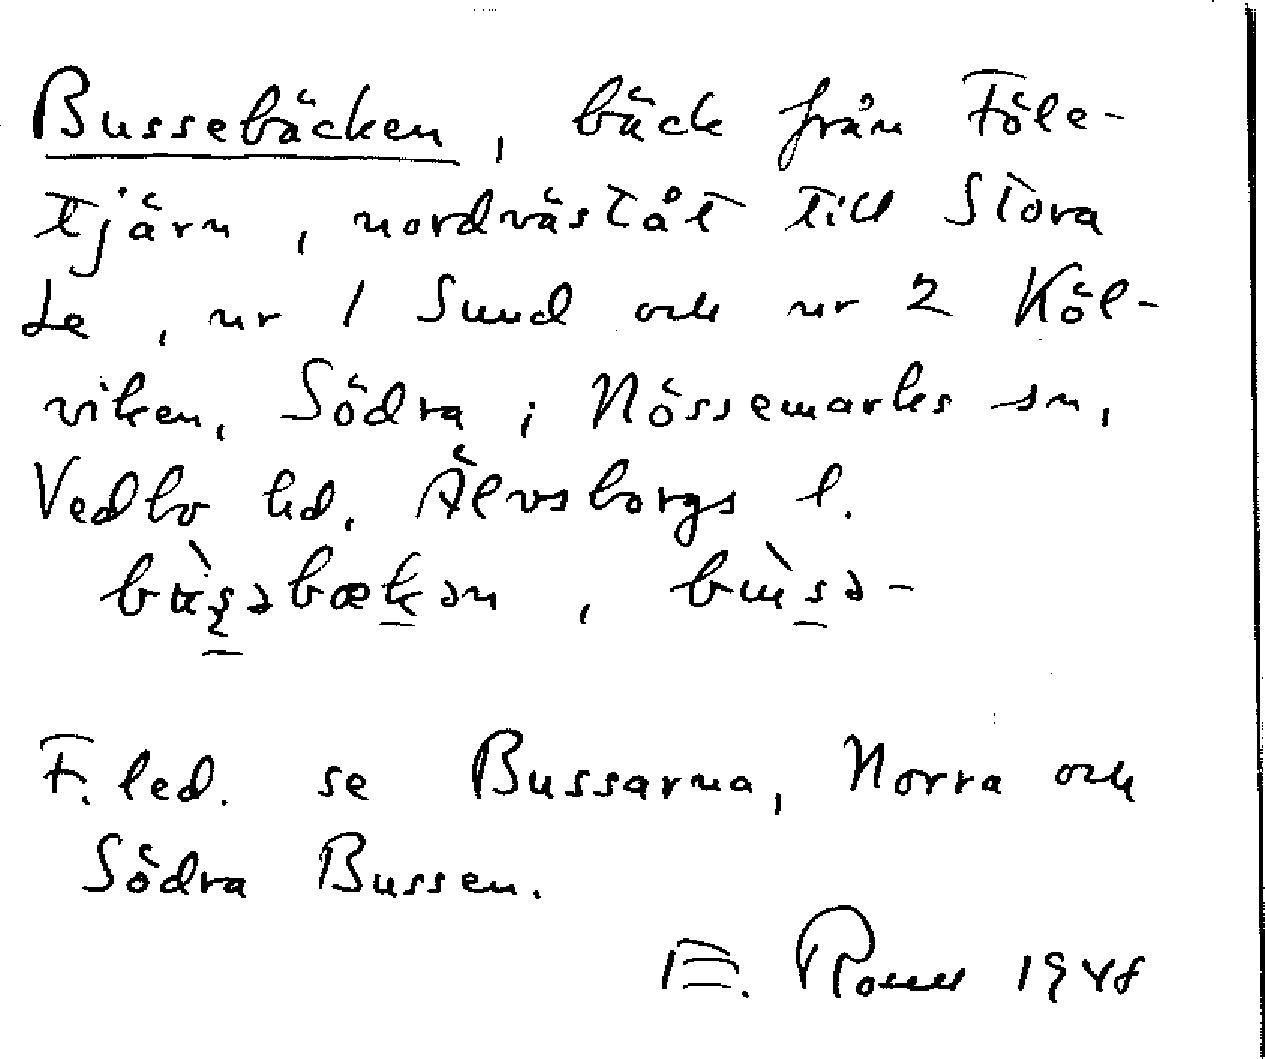 Bussebäcken, bäck från Föle-
tjärn, nordväståt till Stora
Le, ur 1 Sund och ur 2 Köl-
viken, Södra i Nössemarks sn,
Vedbo hd. Älvsborgs l.
F. led. se Bussarna, Norra och
Södra Bussen.
E. 1948